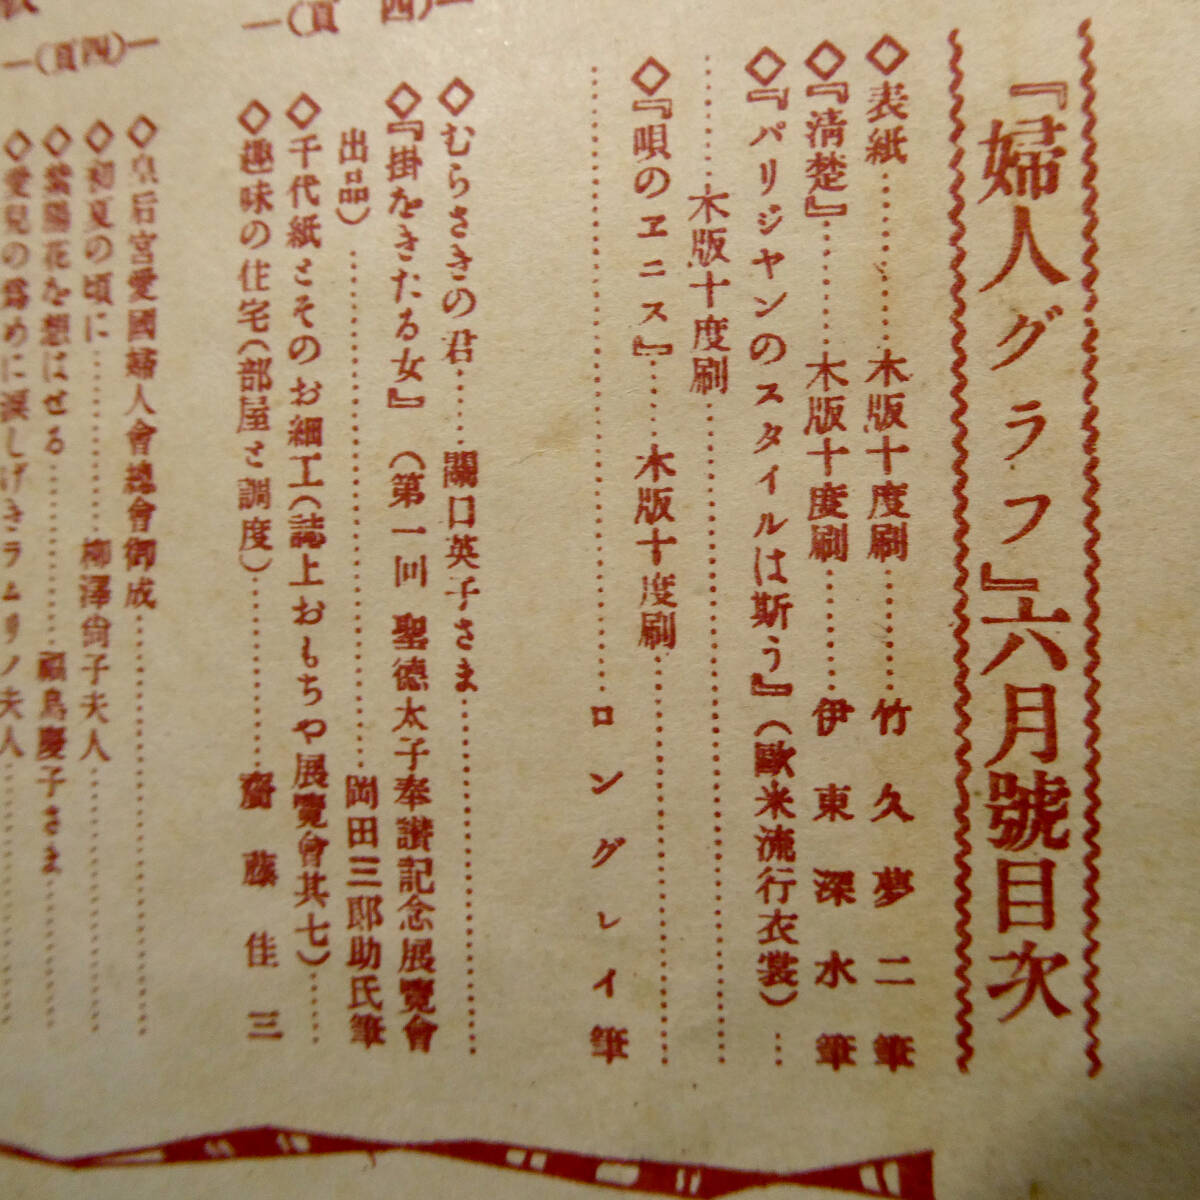 『婦人グラフ』六月號目次
◇表紙………木版十度刷……竹久夢二筆
◇『淸楚』……木版十度刷……伊東深水筆
◇『パリジヤンのスタイルは斯う』(歐米流行衣裳)…
……木版十度刷…………
◇『唄のヱニス』……木版十度刷…………
…………ロングレイ筆
◇むらさきの君……關口英子さま…………
◇『掛をきたる女』(第一回 聖德太子奉讃記念展覽會
出品)…………岡田三郎助氏筆
◇千代紙とそのお細工(誌上おもちや展覽會其七)……
◇趣味の住宅(部屋と調度)………齋藤佳三
―(頁四)―
◇皇后宮愛國婦人會總會御成…………
◇初夏の頃に………柳澤尙子夫人…………
◇紫陽花を想はせる………福島慶子さま………
◇愛兒の爲めに淚しげきラムリノ夫人………
―(頁四)―